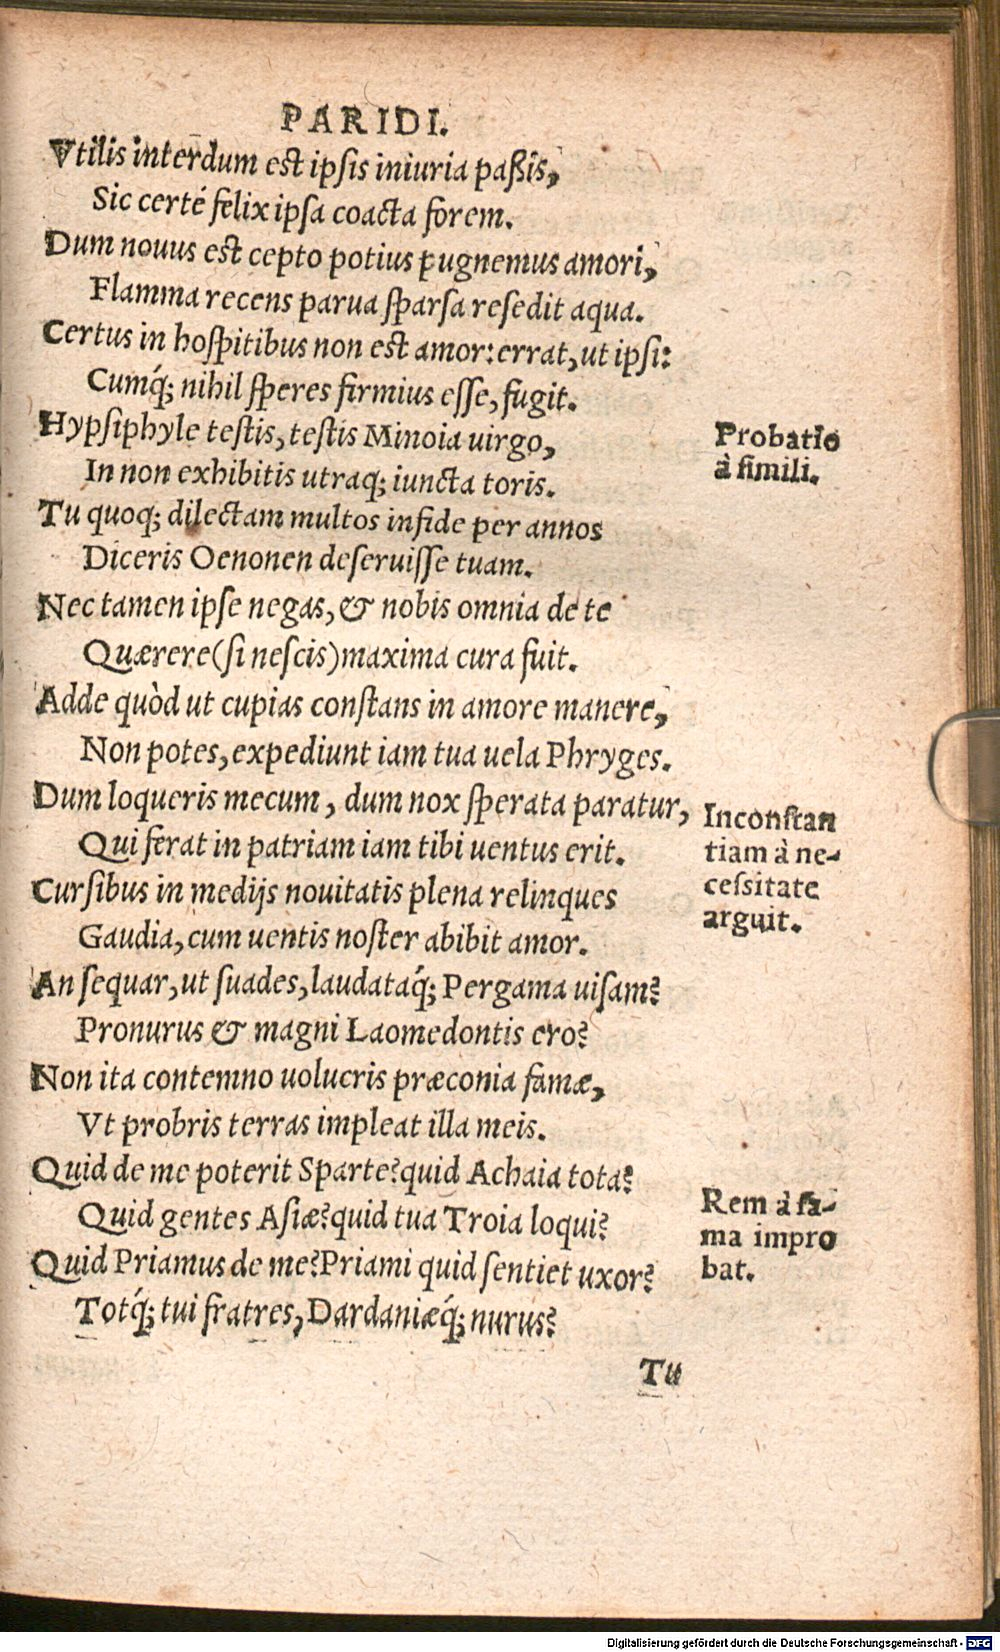 PARIDI.
Vtilis interdum est ipsis iniuria paßis,
Sic certé felix ipsa coacta forem.
Dum nouus est cepto potius pugnemus amori,
Flamma recens parua sparsa resedit aqua.
Certus in hospitibus non est amor: errat, ut ipsi:
Cumq́; nihil speres firmius esse, fugit.
Hypsiphyle testis, testis Minoia uirgo,
Probatio
In non exhibitis utraq; iuncta toris.
à simili.
Tu quoq; dilectam multos infide per annos
Diceris Oenonen deseruisse tuam.
Nec tamen ipse negas, & nobis omnia de te
Quærere (si nescis) maxima cura fuit.
Adde quòd ut cupias constans in amore manere,
Non potes, expediunt iam tua uela Phryges.
Dum loqueris mecum, dum nox sperata paratur,
Inconstan
Qui ferat in patriam iam tibi uentus erit.
tiam à ne-
Cursibus in medijs nouitatis plena relinques
cessitate
Gaudia, cum uentis noster abibit amor.
arguit.
An sequar, ut suades, laudataq́; Pergama uisam?
Pronurus & magni Laomedontis ero?
Non ita contemno uolucris præconia famæ,
Vt probris terras impleat illa meis.
Quid de me poterit Sparte? quid Achaia tota?
Rem à fa-
Quid gentes Asiæ? quid tua Troia loqui?
ma impro
Quid Priamus de me? Priami quid sentiet uxor?
bat.
Totq́; tui fratres, Dardaniæq́; nurus?
Tu
Digitalisierung gefördert durch die Deutsche Forschungsgemeinschaft - DFG